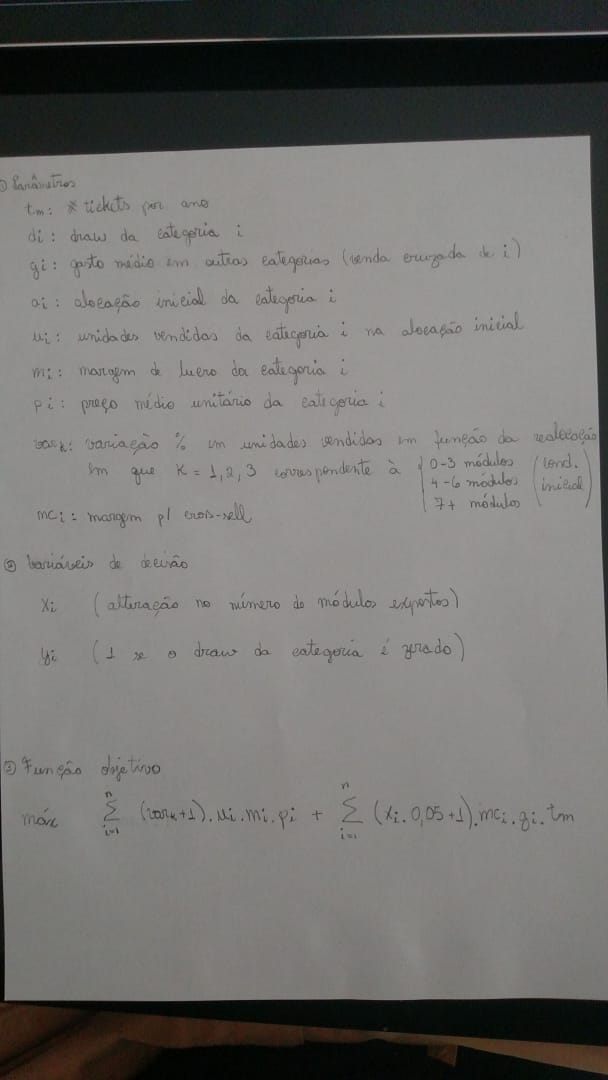 ① Parâmetros
tm: # tickets por ano
di: draw da categoria i
gi: gasto médio em outras categorias (venda cruzada de i)
ai: alocação inicial da categoria i
ui: unidades vendidas da categoria i na alocação inicial
mi: margem de lucro da categoria i
pi: preço médio unitário da categoria i
vark: variação % em unidades vendidas em função da realocação
em que K = 1, 2, 3 correspondente à { 0-3 módulos (cond.
4-6 módulos inicial)
7+ módulos
mci: margem p/ crois-sell
② Variáveis de decisão
Xi (alteração no número de módulos expostos)
yi (1 se o draw da categoria é zerado)
③ Função objetivo
máx n∑i=1 (vark+1).ui.mi.pi + n∑i=1 (Xi.0,05+1).mci.gi.tm